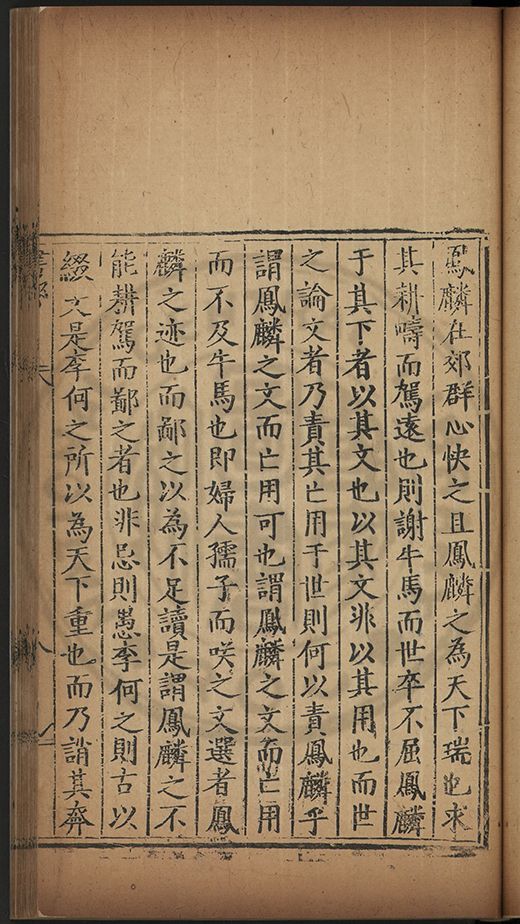 鳳麟在郊群心快之且鳳麟之為天下瑞也求
其耕疇而駕遠也則謝牛馬而世卒不屈鳳麟
于其下者以其文也以其文非以其用也而世
之論文者乃責其亡用于世則何以責鳳麟乎
謂鳳麟之文而亡用可也謂鳳麟之文而亡用
而不及牛馬也即婦人孺子而咲之文選者鳳
麟之迹也而鄙之以為不足讀是謂鳳麟之不
能耕駕而鄙之者也非忌則愚李何之則古以
綴文是李何之所以為天下重也而乃誚其奔